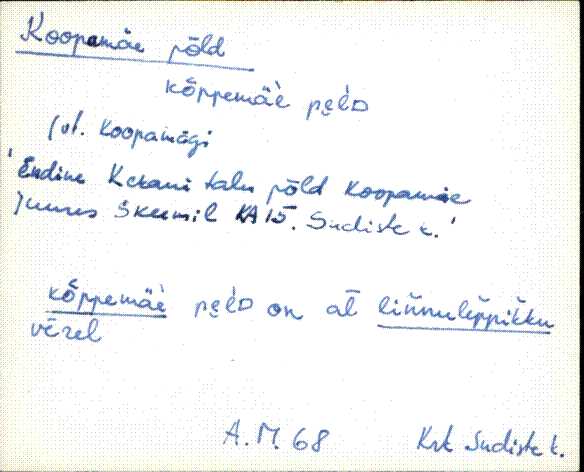 Koopamäe põld
kõppemäè pe̮l'D
(vt. Koopamägi
'Endine Kekani talu põld Koopamäe
juures skeemil KA 15. Sudiste k.'
kõppemäè pe̮l'D on al lińnuleppikku
vērel
A.M. 68 Krk Sudiste k.